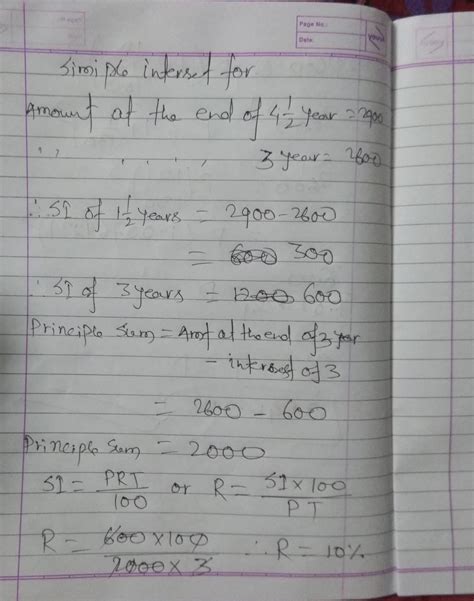 Page No.:
Date:
Simiple interset for
Amount at the end of 4 1/2 year = 2900
,, , , , , 3 year = 2600
∴ SI of 1 1/2 years = 2900 - 2600
= 600 300
∴ SI of 3 years = 1200 600
Principle Sum = Amt at the end of 3 year
- interset of 3
= 2600 - 600
Principle Sum = 2000
SI = PRT/100 or R = SI × 100/PT
R = 600 × 100/2000 × 3 ∴ R = 10%